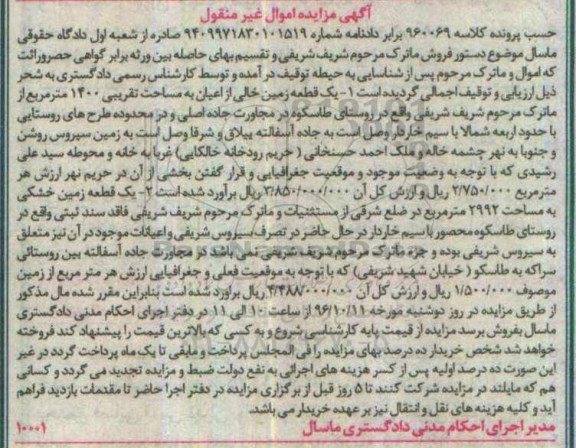 آگهی مزایده اموال غیر منقول
حسب پرونده کلاسه ۹۶۰۰۶۹ برابر دادنامه شماره ۹۴۰۹۹۷۱۸۳۰۱۰۱۵۱۹ صادره از شعبه اول دادگاه حقوقی
ماسال موضوع دستور فروش ماترک مرحوم شریف شریفی و تقسیم بهای حاصله بین ورثه برابر گواهی حصروراثت
که اموال و ماترک مرحوم پس از شناسایی به حیطه توقیف در آمده و توسط کارشناس رسمی دادگستری به شحر
ذیل ارزیابی و توقیف اجمالی گردیده است ۱- یک قطعه زمین خالی از اعیان به مساحت تقریبی ۱۴۰۰ مترمربع از
ماترک مرحوم شریف شریفی واقع در روستای طاسکوه در مجاورت جاده اصلی و در محدوده طرح های روستایی
با حدود اربعه شمالا با سیم خاردار وصل است به جاده آسفالته ییلاق و شرقا وصل است به زمین سیروس روشن
و جنوبا به نهر چشمه خاله و ملک احمد حسنخانی ( حریم رودخانه خالکایی) غربا به خانه و محوطه سید علی
رشیدی که با توجه به وضعیت موجود و موقعیت جغرافیایی و قرار گفتن بخشی از آن در حریم نهر ارزش هر
مترمربع ۲/۷۵۰/۰۰۰ ریال و ارزش کل آن ۳/۸۵۰/۰۰۰/۰۰۰ ریال برآورد شده است ۲- یک قطعه زمین خشکی
به مساحت ۲۹۹۲ مترمربع در ضلع شرقی از مستثنیات و ماترک مرحوم شریف شریفی فاقد سند ثبتی واقع در
روستای طاسکوه محصور با سیم خاردار در حال حاضر در تصرف سیروس شریفی و اعیانات موجود در آن نیز متعلق
به سیروس شریفی بوده و جزء ماترک مرحوم شریف شریفی نمی باشد در مجاورت جاده آسفالته بین روستائی
سراکه به طاسکو ( خیابان شهید شریفی) که با توجه به موقعیت فعلی و جغرافیایی ارزش هر متر مربع از زمین
موصوف ۱/۵۰۰/۰۰۰ ریال و ارزش کل آن ۴/۴۸۸/۰۰۰/۰۰۰ ریال براورد شده است بنابراین مقرر شده مال مذکور
از طریق مزایده در روز دوشنبه مورخه ۹۶/۱۰/۱۱ از ساعت ۱۰ الی ۱۱ در دفتر اجرای احکام مدنی دادگستری
ماسال بفروش برسد مزایده از قیمت پایه کارشناسی شروع و به کسی که بالاترین قیمت را پیشنهاد کند فروخته
خواهد شد شخص خریدار ده درصد بهای مزایده را فی المجلس پرداخت و مابقی تا یک ماه پرداخت گردد در غیر
این صورت ده درصد اولیه پس از کسر هزینه های اجرائی به نفع دولت ضبط و مزایده تجدید می گردد و کسانی
هم که مایلند در مزایده شرکت کنند تا ۵ روز قبل از برگزاری مزایده در دفتر اجرا حاضر تا مقدمات بازدید فراهم
آید و کلیه هزینه های نقل و انتقال نیز بر عهده خریدار می باشد.
مدیر اجرای احکام مدنی دادگستری ماسال ۱۰۰۰۱